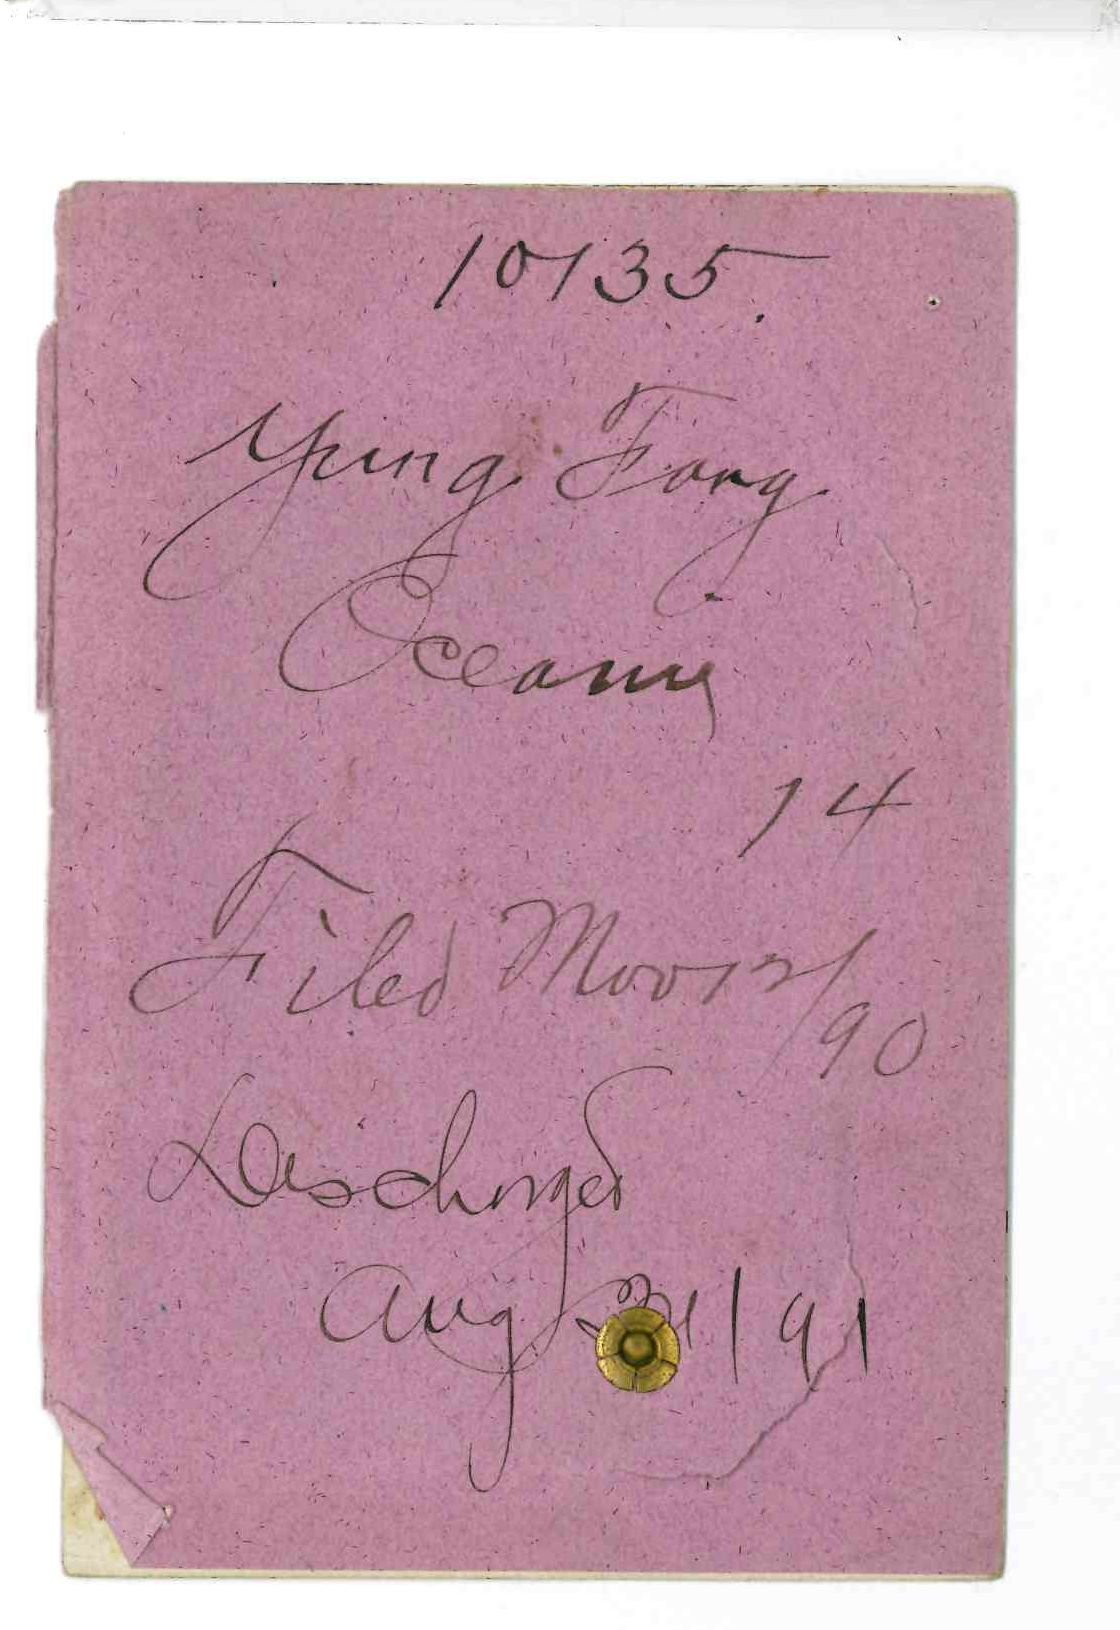 10135
Yung Fong
Oceanic
14
Filed Nov 12/90
Discharged
Aug 31 | 91